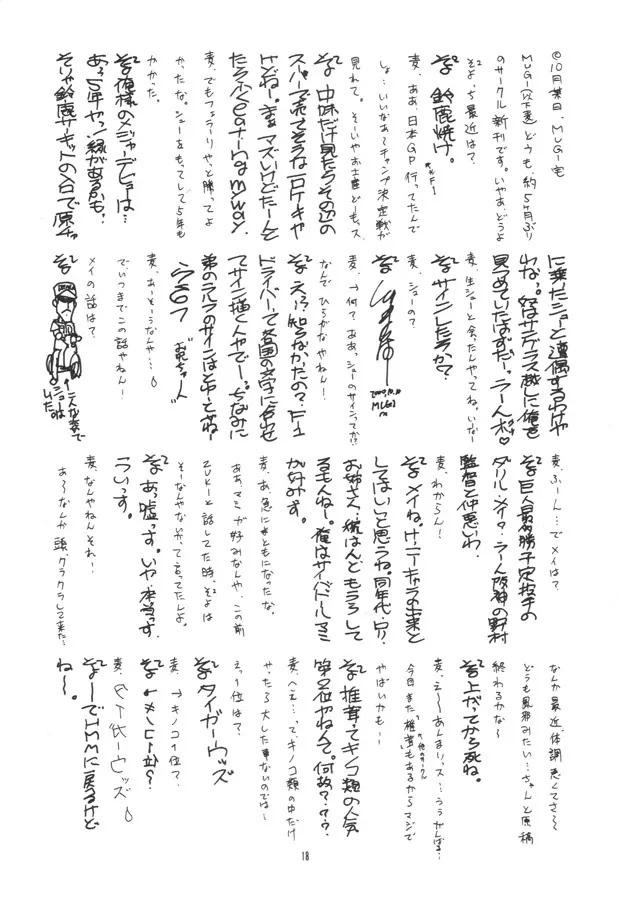 ©10月某日、MUGI宅
MUGI(以下麦)どうも、約5ヶ月ぶり
のサークル新刊です。いやぁ、どうよ
そよっち、最近は？
そよ²鈴鹿焼け。
麦、ああ、日本GP行ってたんで
しょ…いいなぁ〜チャンプ決定戦が
見れて。そういやお土産ども。ス
そよ²中味だけ見たらその辺の
スーパーで売ってそうな一口ケーキや
けどねー。まぁ、マズいけどたーんと
たらふくeating my way.
麦、でもフェラーリやっと勝ってよ
やったな。シューをもってして5年も
かかった。
そよ²俺様のメジャーデビューは…
あっ5年やっ!縁があるかも。
そりゃ鈴鹿サーキットの入口で原チャ
に乗ったシューと遭遇するわけや
わな。奴はサングラス越しに俺を
見つめていたはずだー。うーん
麦、生シューと会ったんやってね。いいなー
そよ²サインしたろか?
麦、シューの?
そよ²
MUGI
麦、→何？ああっ、シューのサインってか?!
なんで ひらがなやねん!
そよ²え!?知らなかったの？F1
ドライバーって各国の文字に合わせ
てサイン描くんやでー。ちなみに
弟のラルフのサインはこうやとねー
らるふ
麦、あーそーうなんや…
で、いつまでこの話やねん！
メイの話は？
そよ²
麦、ふーん…でメイは？
そよ²巨人最多勝予定投手の
ダリル・メイ。阪神の野村
監督と仲悪いわ。
麦、わからん！
そよ²メイね。
してはいいっと思うね。同年代・ロリ・
お姉さん
るもんねー。俺はサイバドールマミ
が好みっす。
麦、あ、急にまともになったな。
ああ、マミが好みなんや、この前
ZUKEと話してた時、そよは
そーなんやないかって言ってたんよ。
そよ²あっ嘘っす。いや、本当っす。
ういっす。
麦、なんやねんそれ！
あ〜なんか頭、クラクラして来た…
なんか最近、体調悪くてさ〜
どうも風邪みたい…ちゃんと原稿
終わるかな〜
そよ²上がってから死ね。
麦、え〜あんまりっス…ううがんばる…
今日また"椎茸"もあるからマジで
やばいかも…
そよ²椎茸ってキノコ類の人気
第2位やねんて。何故???
麦、へえ…って、キノコ類の中だけ
やったら大した事ないのでは〜
えっ、1位は？
そよ²タイガーウッズ
麦、→キノコ1位？
麦、
そよ²ーでHMMに戻るけど
ね〜。
18